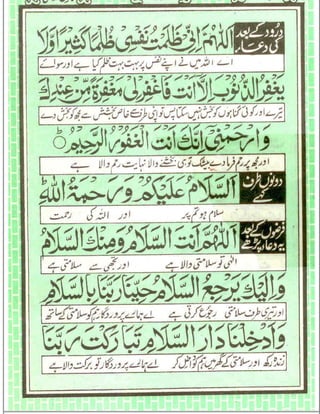 درود کے بعد کی دعاء
اللّٰهُمَّ اِنِّیْ ظَلَمْتُ نَفْسِیْ ظُلْمًا كَثِیْرًا وَّلَا
اے اللہ میں نے اپنے نفس پر بہت بہت ظلم کیا ہے اور سوائے
یَغْفِرُ الذُّنُوْبَ اِلَّا اَنْتَ فَاغْفِرْ لِیْ مَغْفِرَةً مِّنْ عِنْدِكَ
تیرے اور کوئی گناہوں کو بخش نہیں سکتا پس تو اپنی طرف خاص بخشش سے مجھ کو بخش دے
وَارْحَمْنِیْ اِنَّكَ اَنْتَ الْغَفُوْرُ الرَّحِیْمُ
اور مجھ پر رحم فرما دے بیشک تو ہی بخشنے والا نہایت رحم والا ہے
دونوں طرف کہے
اَلسَّلَامُ عَلَیْكُمْ وَرَحْمَةُ اللّٰهِ
سلام ہو تم پر اور اللہ کی رحمت
فرضوں کے بعد یہ دعا پڑھے
اَللّٰهُمَّ اَنْتَ السَّلَامُ وَمِنْكَ السَّلَامُ
الٰہی تو سلامتی والا ہے اور تجھی سے سلامتی ہے
وَاِلَیْكَ یَرْجِعُ السَّلَامُ حَیِّنَا رَبَّنَا بِالسَّلَامِ
اور تیری طرف سلامتی رجوع کرتی ہے اے ہمارے پروردگار ہم کو سلامتی کے ساتھ
وَاَدْخِلْنَا دَارَ السَّلَامِ تَبَارَكْتَ رَبَّنَا
زندہ رکھ اور سلامتی کے گھر میں ہم کو داخل کر اے ہمارے پروردگار تو برکت والا ہے